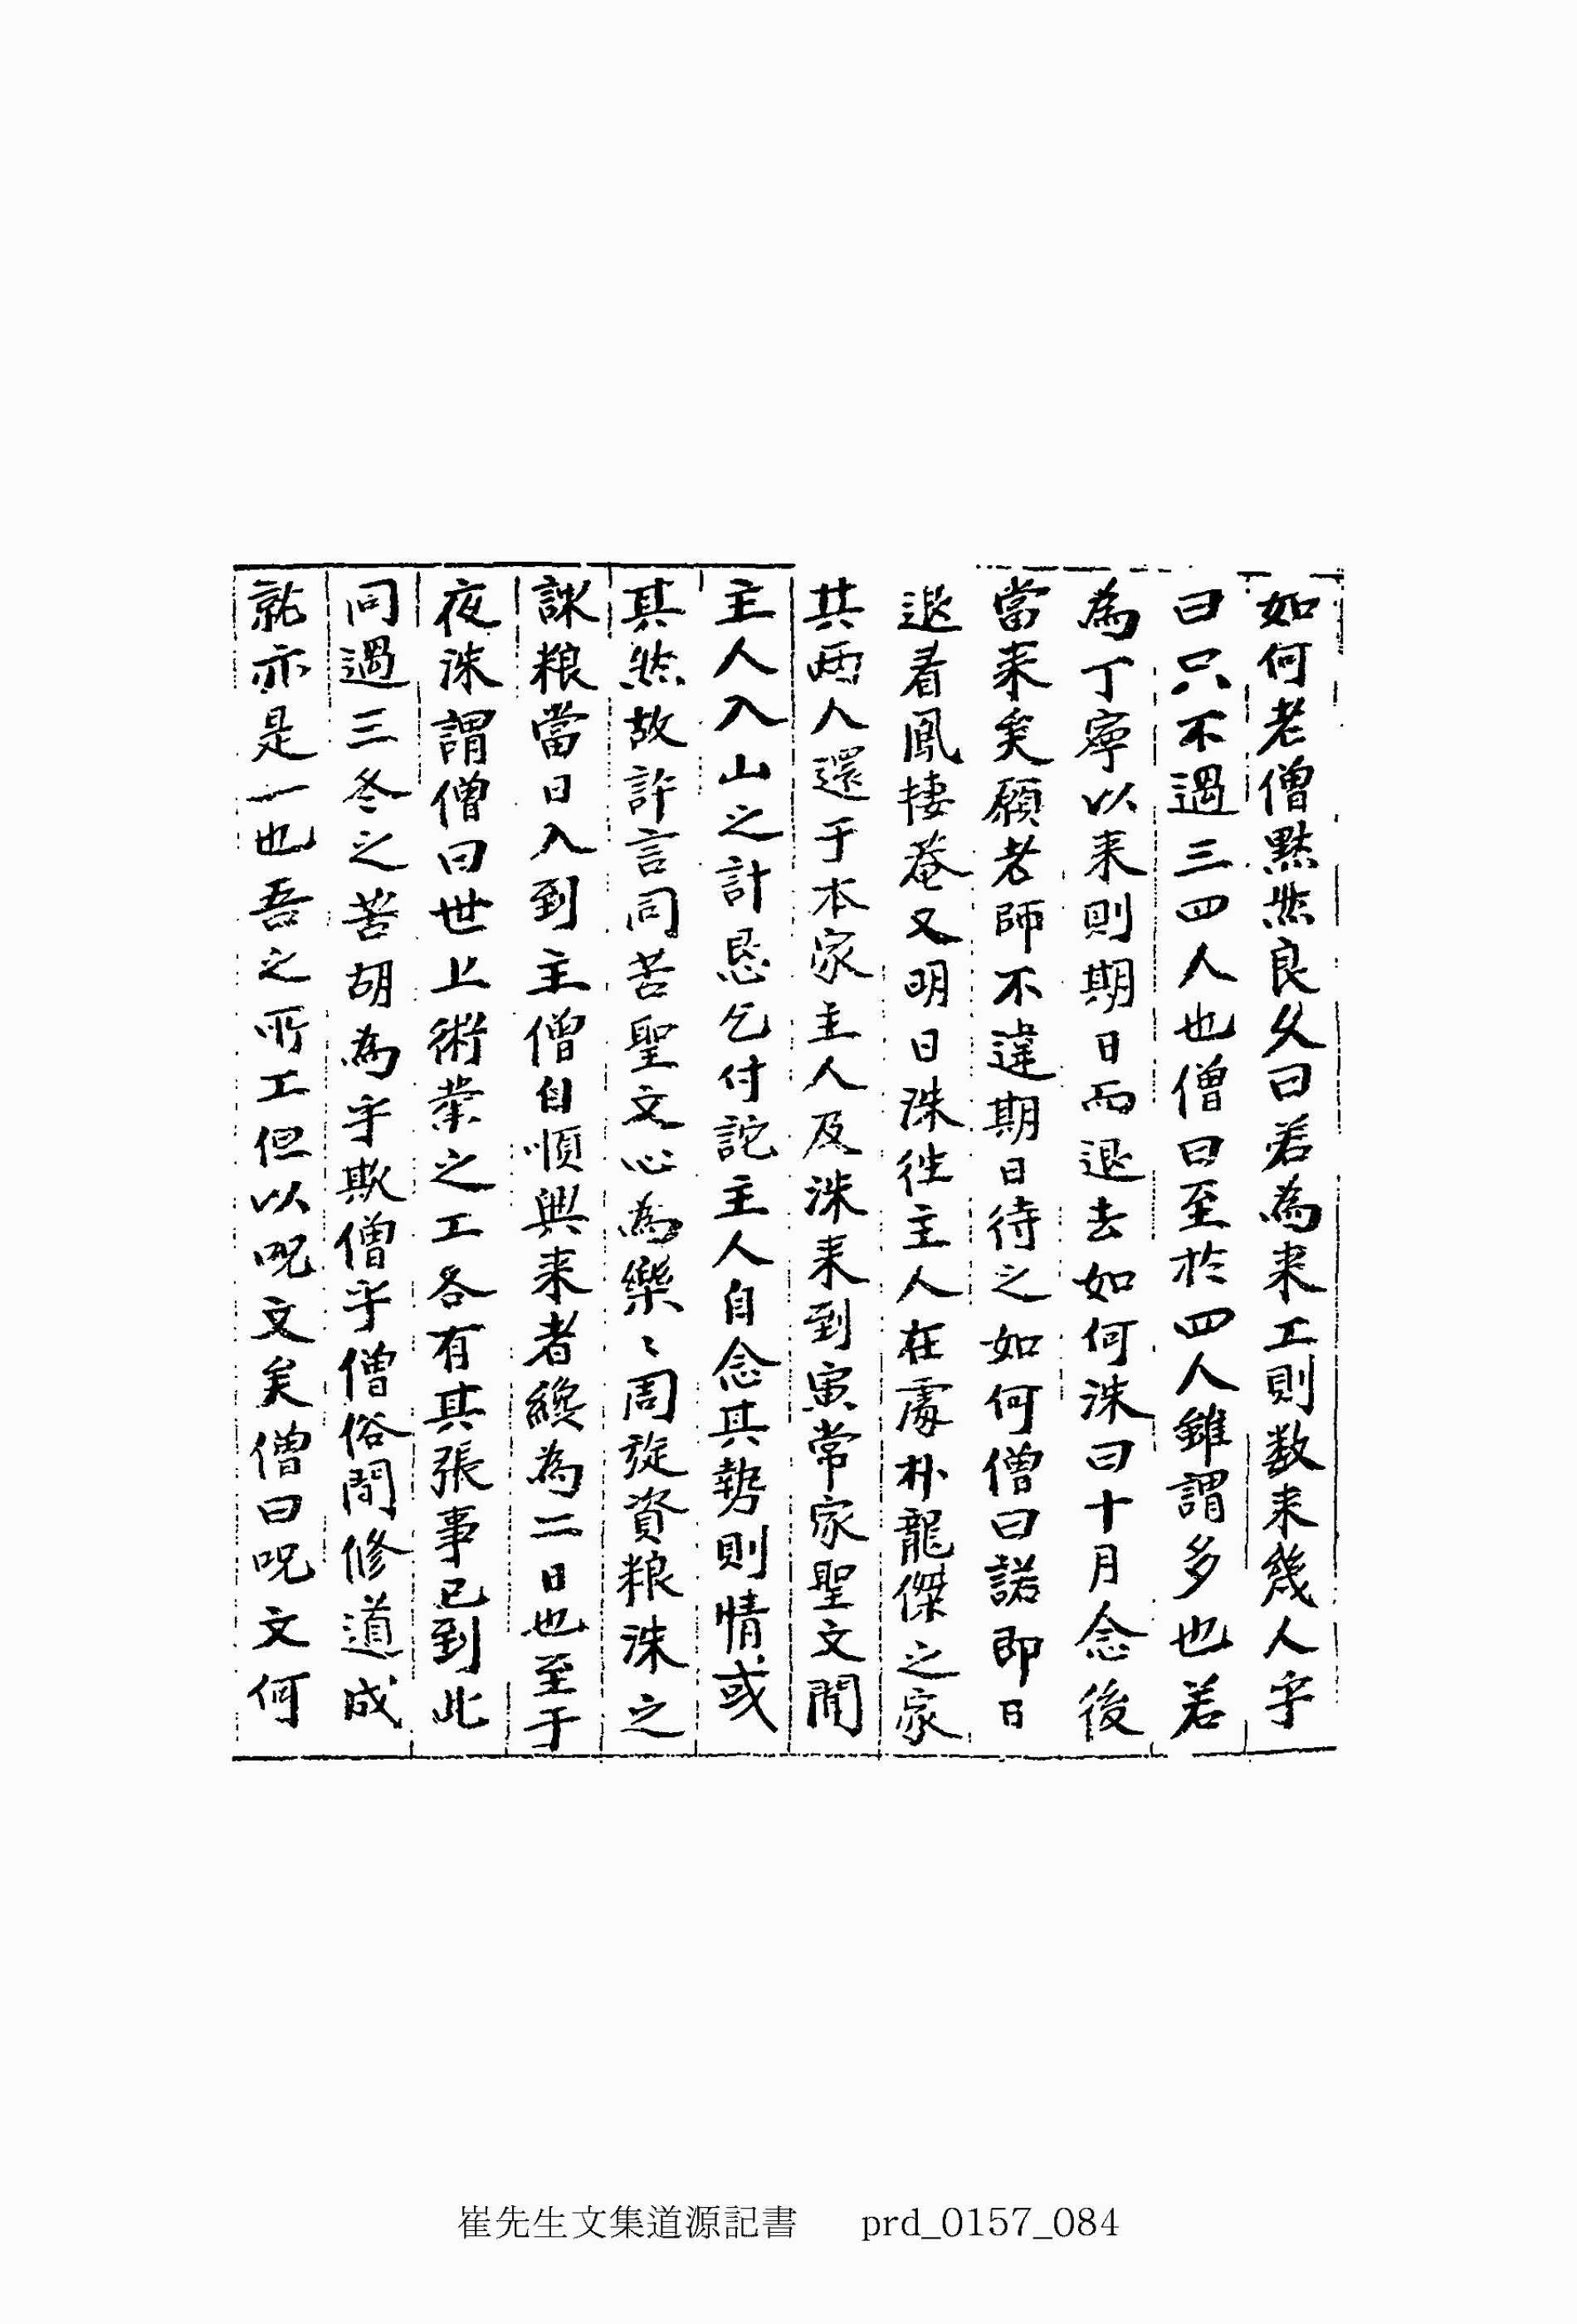 如何老僧黙然良久曰若為来工則数来幾人乎
曰只不過三四人也僧曰至於四人雖謂多也若
為丁寧以来則期日而退去如何洙曰十月念後
當来矣願老師不違期日待之如何僧曰諾即日
退看鳳捿菴又明日洙徃主人在處朴龍傑之家
共兩人還于本家主人及洙来到寅常家聖文聞
主人入山之計恳乞付詑主人自念其勢則情或
其然故許言同苦聖文心為樂〻周旋資粮洙之
誅粮當日入到主僧自順興来者纔為二日也至于
夜洙謂僧曰世上術業之工各有其張事已到此
同過三冬之苦胡為乎欺僧乎僧俗間修道成
就亦是一也吾之所工但以呪文矣僧曰呪文何
崔先生文集道源記書 prd_0157_084